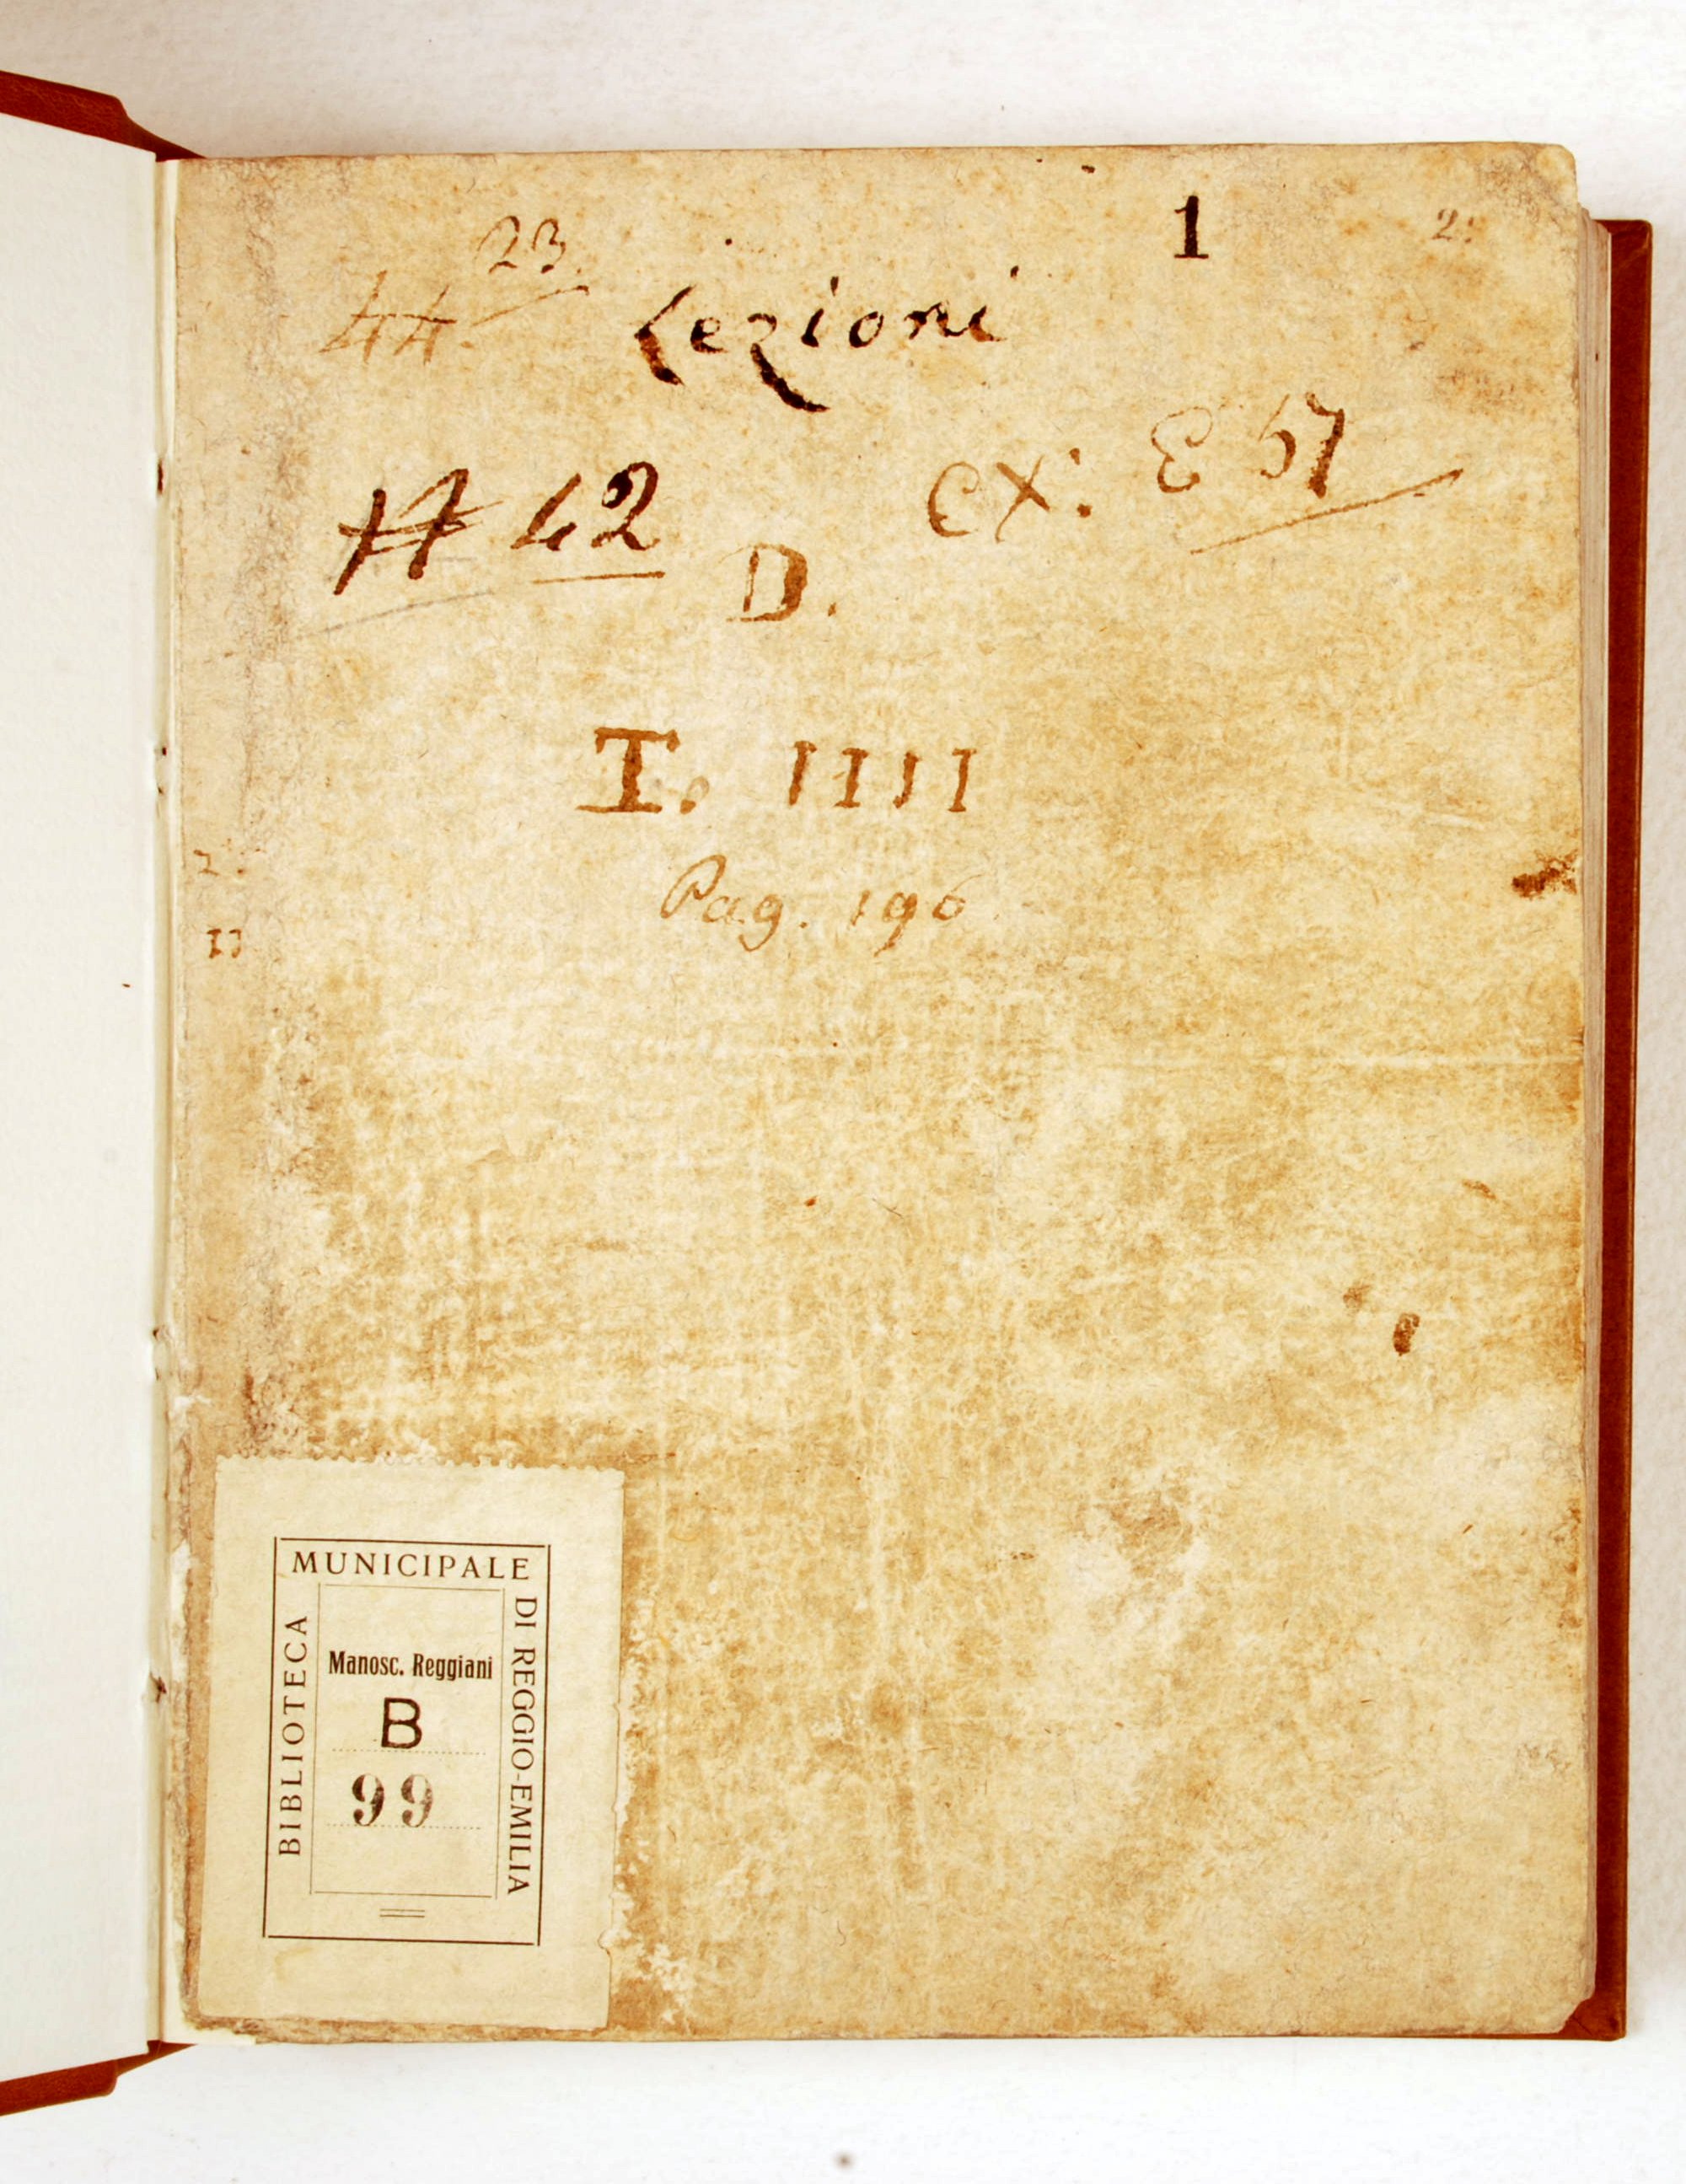 1
23.
44.
Lezioni
42
ex: E 57
D.
T. IIII
Pag. 196
II
MUNICIPALE
BIBLIOTECA
DI REGGIO-EMILIA
Manosc. Reggiani
B
99